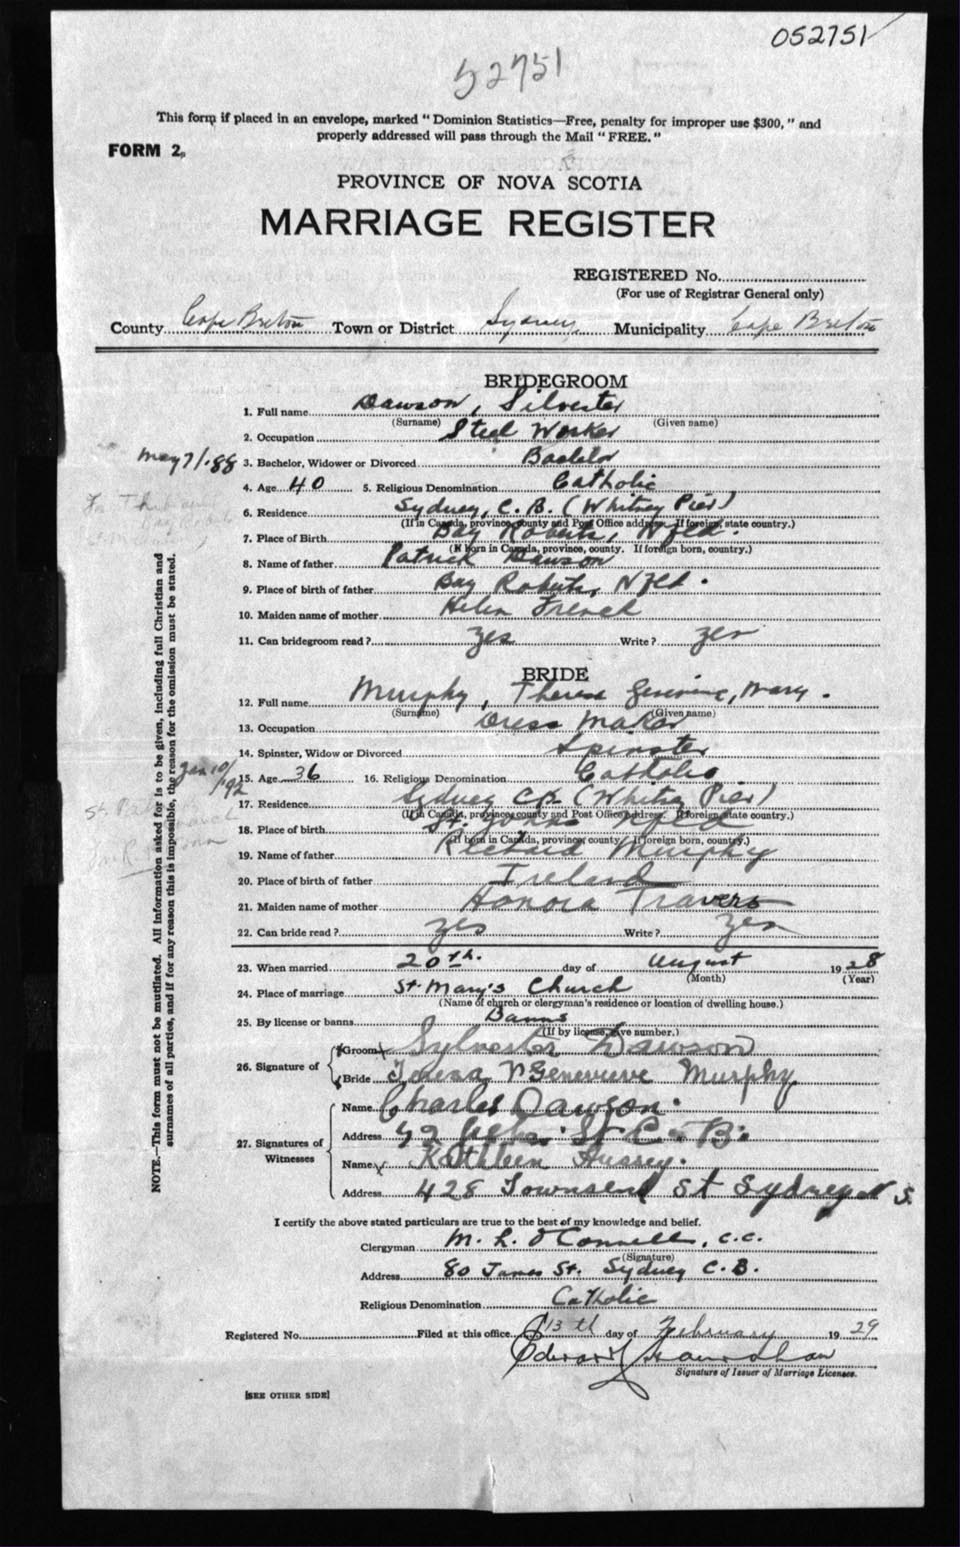 052751
52751
This form if placed in an envelope, marked "Dominion Statistics—Free, penalty for improper use $300," and
properly addressed will pass through the Mail "FREE."
FORM 2.
PROVINCE OF NOVA SCOTIA
MARRIAGE REGISTER
REGISTERED No.
(For use of Registrar General only)
County Cape Breton Town or District Sydney Municipality Cape Breton
BRIDEGROOM
1. Full name Dawson, Silvester
(Surname) (Given name)
2. Occupation Steel Worker
May 7/88 3. Bachelor, Widower or Divorced Bachelor
4. Age 40 5. Religious Denomination Catholic
6. Residence Sydney, C.B. (Whitney Pier)
(If in Canada, province, county and Post Office address. If foreign, state country.)
7. Place of Birth Bay Roberts, Nfld.
(If born in Canada, province, county. If foreign born, country.)
8. Name of father Patrick Dawson
9. Place of birth of father Bay Roberts, Nfld.
10. Maiden name of mother Helen French
11. Can bridegroom read? Yes Write? Yes
BRIDE
12. Full name Murphy, Theresa Genevieve, Mary.
(Surname) (Given name)
13. Occupation Dress Maker
14. Spinster, Widow or Divorced Spinster
Jan 10/92 15. Age 36 16. Religious Denomination Catholic
17. Residence Sydney C.B. (Whitney Pier)
(If in Canada, province, county and Post Office address. If foreign, state country.)
18. Place of birth St. Johns Nfld
(If born in Canada, province, county. If foreign born, country.)
19. Name of father Richard Murphy
20. Place of birth of father Ireland
21. Maiden name of mother Honora Travers
22. Can bride read? Yes Write? Yes
23. When married 20th. day of August 1928
(Month) (Year)
24. Place of marriage St. Mary's Church
(Name of church or clergyman's residence or location of dwelling house.)
25. By license or banns Banns
(If by license, give number.)
26. Signature of
Groom Sylvester Dawson
Bride Teresa Genevieve Murphy
27. Signatures of Witnesses
Name Charles Dawson.
Address St C.B.
Name Kathleen Hussey.
Address 428 Townsend St Sydney N S.
I certify the above stated particulars are true to the best of my knowledge and belief.
Clergyman M. L. O'Connell, C.C.
(Signature)
Address 80 James St. Sydney C.B.
Religious Denomination Catholic
Registered No. Filed at this office 13th day of February 1929
Edward
Signature of Issuer of Marriage Licenses.
[SEE OTHER SIDE]
NOTE.—This form must not be mutilated. All information asked for is to be given, including full Christian and
surnames of all parties, and if for any reason this is impossible, the reason for the omission must be stated.